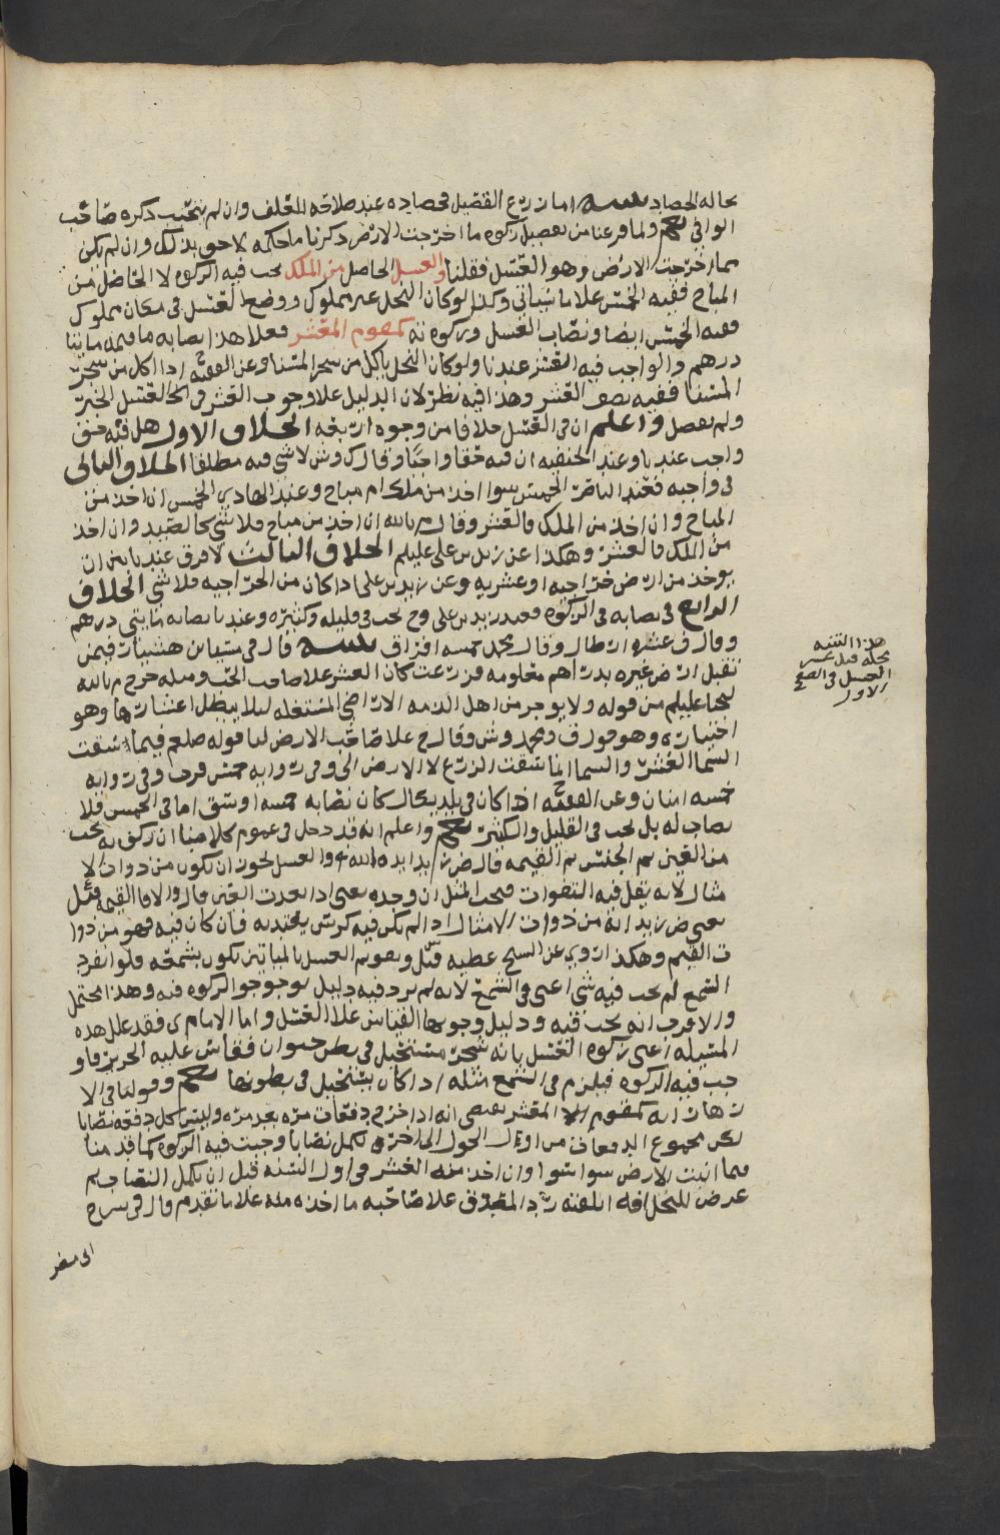 بحاله الحصاد تنبيه اما زرع القصيل فحصاده عند صلاحه للعلف وان لم يتحبب ذكره صاحب
الوافي نعم ولما فرغنا من تفصيل زكوه ما اخرجت الارض ذكرنا ما حكمه لاحق بذلك وان لم يكن
مما اخرجت الارض وهو العسل فقلنا والعسل الحاصل من الملك تجب فيه الزكوه لا الحاصل من
المباح ففيه الخمس علا ما سياتي وكذا لو كان النحل غير مملوك ووضع العسل في مكان مملوك
ففيه الخمس ايضا ونصاب العسل وزكوه ته كمقوم المعشر فعلا هذا نصابه ما قيمه مايتا
درهم والواجب فيه العشر عندنا ولو كان النحل ياكل من شجر المسنا وعن الفقيه اذا اكل من شجر
المسنا ففيه نصف العشر وهذا فيه نظر لان الدليل علا وجوب العشر في العسل الخبر
ولم يفصل واعلم ان في العسل خلافا من وجوه اربعه الخلاف الاول هل فيه حق
واجب عندنا وعند الحنفيه ان فيه حقا واجبا وقال ك وش لا شي فيه مطلقا الخلاف الثاني
في واجبه فعند الناصر الخمس سوا اخذ من ملك ام مباح وعند الهادي الخمس ان اخذ من
المباح وان اخذ من الملك فالعشر وقال م بالله ان اخذ من مباح فلا شي كالصيد وان اخذ
من الملك فالعشر وهكذا عن زيد بن علي عليلم الخلاف الثالث لا فرق عندنا بين ان
يوخذ من ارض خراجيه او عشريه وعن زيد بن علي اذا كان من الخراجيه فلا شي الخلاف
الرابع في نصابه في الزكوه فعند زيد بن علي وح تجب في قليله وكثيره وعندنا نصابه مايتي درهم
وقال ف عشره ارطال وقال محمد خمسه افراق تنبيه قال في فيمن
تقبل ارض غيره بدراهم معلومه فزرعت كان العشر علا صاحب الحب ومثله خرج م بالله
ليحيا عليلم من قوله ولا يوجر من اهل الذمه الاراضي المستغله ليلا يبطل اعشارها وهو
اختياره وهو قول ف ومحمد وش وقال ح علا صاحب الارض لنا قوله صلعم فيما سقت
السما العشر والسما انما سقت الزرع لا الارض وفي روايه خمس قرب وفي روايه
خمسه امنان وعن الفقيه اذا كان في بلد يكال كان نصابه خمسه اوسق اما في الخمس فلا
نصاب له بل تجب في القليل والكثير نعم واعلم انه قد دخل في عموم كلامنا ان زكوته تجب
من العين ثم الجنس ثم القيمه قال ض زيد ايده الله والعسل يجوز ان يكون من ذوات الا
مثال لانه يقل فيه التفوات فيجب المثل ان وجد يعني اذا تعذرت العين قال والا فالقيمه قيل
يعني ض زيد انه من ذوات الامثال اذا لم يكن فيه كرس يعتد به فان كان فيه فهو من ذوا
ت القيم وهكذا روي عن الشيخ عطيه قيل وتقويم العسل بالمياتين يكون بشمعه فلو انفرد
الشمع لم تجب فيه شي اعني في الشمع لانه لم يرد فيه دليل بوجوب الزكوه فيه وهذا محتمل
والاقرب انه يجب فيه ودليل وجوبها القياس علا العسل واما الامام ى فقد علل هذه
المسيله اعني زكوه العسل بانه شجر مستحيل في بطن حيوان فقاس عليه الحرير فاو
جب فيه الزكوه فيلزم في الشمع مثله اذا كان يستحيل في بطونها نعم وقولنا في الا
زهار انه كمقوم المعشر يقتضي انه اذا خرج دفعات مره بعد مره وليس كل دفعه نصابا
لكن مجموع الدفعات من اول الحول الى اخره يكمل نصابا وجبت فيه الزكوه كما قدمنا
فيما انبت الارض سوا سوا وان اخذ منه العشر في اول السنه قبل ان يكمل النصاب ثم
عرض للنحل افه اتلفته رد المصدق علا صاحبه ما اخذه منه علا ما تقدم قال في شرح
ابي مضر
هذا التنبيه
محله قبل عشر
العسل في الصفح
الاول